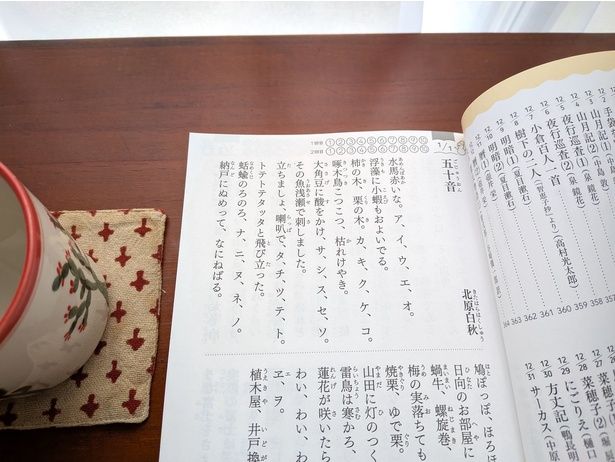 12/2 山月記(1)(中島敦
12/3 山月記(2)(中島
12/4 夜行巡査(1)(泉鏡花)
12/5 夜行巡査(2)(泉鏡花)
小倉百人一首
樹下の二人(「智恵子抄」より)(高村光太郎)
明暗(1)(夏目漱石)
明暗(2)(夏目漱石)
358
359
360
361
362
363
364
12/27
12/28 にごりえ(樋口
12/29 方丈記(鴨長明
12/30 菜穂子(2)(
12/31 サーカス(中原
1回目 ①②③④⑤⑥⑦⑧⑨⑩
2回目 ①②③④⑤⑥⑦⑧⑨⑩
1/1
五十音
北原白秋
水馬赤いな。ア、イ、ウ、エ、オ。
浮藻に小蝦もおよいでる。
柿の木、栗の木。カ、キ、ク、ケ、コ。
啄木鳥こつこつ、枯れけやき。
大角豆に醋をかけ、サ、シ、ス、セ、ソ。
その魚浅瀬で刺しました。
立ちましょ、喇叭で、タ、チ、ツ、テ、ト。
トテトテタッタと飛び立った。
蛞蝓のろのろ、ナ、ニ、ヌ、ネ、ノ。
納戸にぬめって、なにねばる。
鳩ぽっぽ、ほろほ
日向のお部屋に
蝸牛、螺旋巻、
梅の実落ちても
焼栗、ゆで栗。
山田に灯のつく
雷鳥は寒かろ、
蓮花が咲いたら
わい、わい、わい
ヱ、ヲ。
植木屋、井戸換